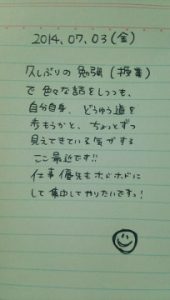 2014.07.03(金)
久しぶりの勉強(授業)
で色々な話をしつつも、
自分自身、どうゆう道を
歩もうかと、ちょっとずつ
見えてきている気がする
ここ最近です!!
仕事優先もホドホドに
して集中してやりたいですっ!